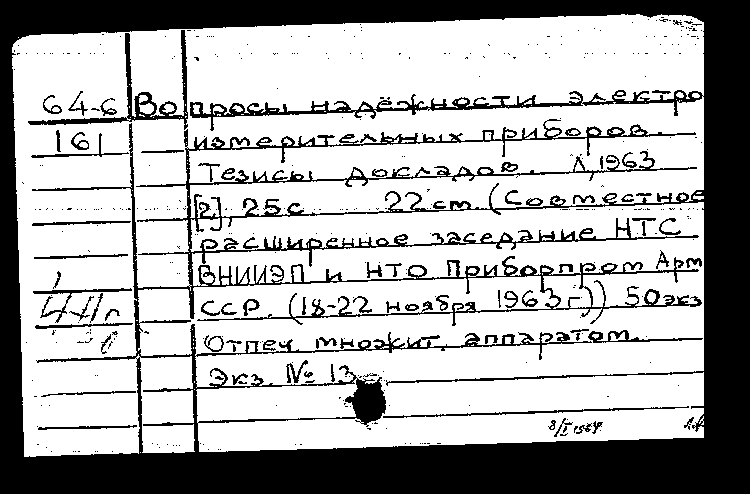 64-6 Вопросы надёжности электро
161 измерительных приборов.
Тезисы докладов. Л, 1963
[2], 25с. 22 см. (Совместное
расширенное заседание НТС
ВНИИЭП и НТО Приборпром Арм
ССР. (18-22 ноября 1963 г.)) 50 экз
Отпеч. множит. аппаратом.
Экз. № 13
8/I 1964